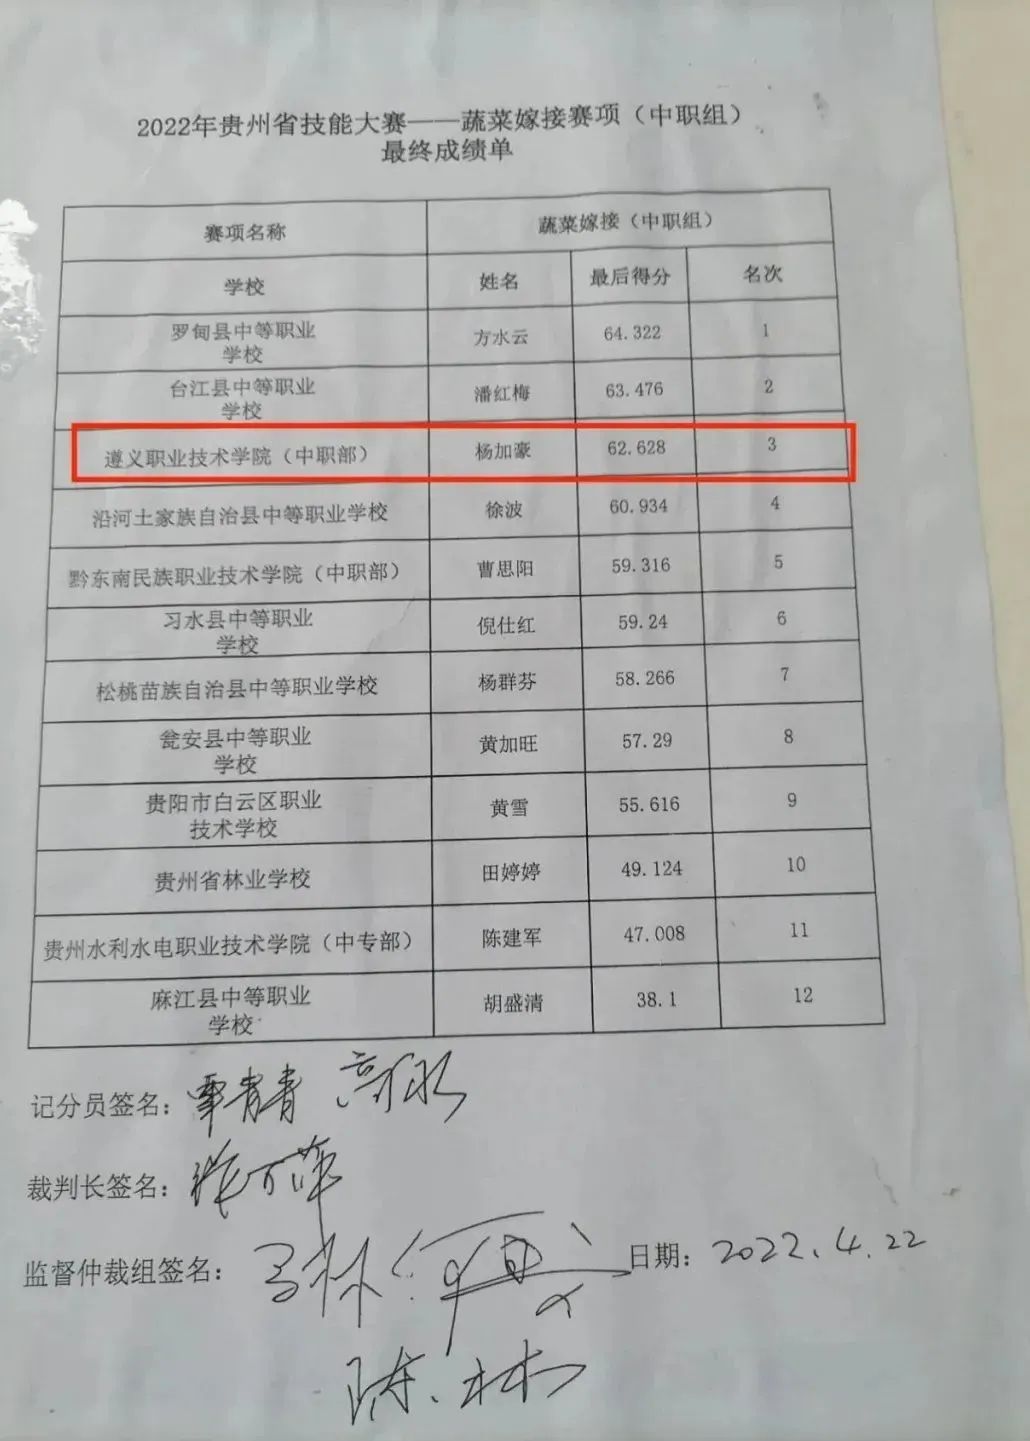 2022年贵州省技能大赛——蔬菜嫁接赛项（中职组）
最终成绩单
赛项名称 蔬菜嫁接（中职组）
学校 姓名 最后得分 名次
罗甸县中等职业
学校 方水云 64.322 1
台江县中等职业
学校 潘红梅 63.476 2
遵义职业技术学院（中职部） 杨加豪 62.628 3
沿河土家族自治县中等职业学校 徐波 60.934 4
黔东南民族职业技术学院（中职部） 曹思阳 59.316 5
习水县中等职业
学校 倪仕红 59.24 6
松桃苗族自治县中等职业学校 杨群芬 58.266 7
瓮安县中等职业
学校 黄加旺 57.29 8
贵阳市白云区职业
技术学校 黄雪 55.616 9
贵州省林业学校 田婷婷 49.124 10
贵州水利水电职业技术学院（中专部） 陈建军 47.008 11
麻江县中等职业
学校 胡盛清 38.1 12
记分员签名：覃青青
裁判长签名：
监督仲裁组签名： 日期：2022.4.22
陈林